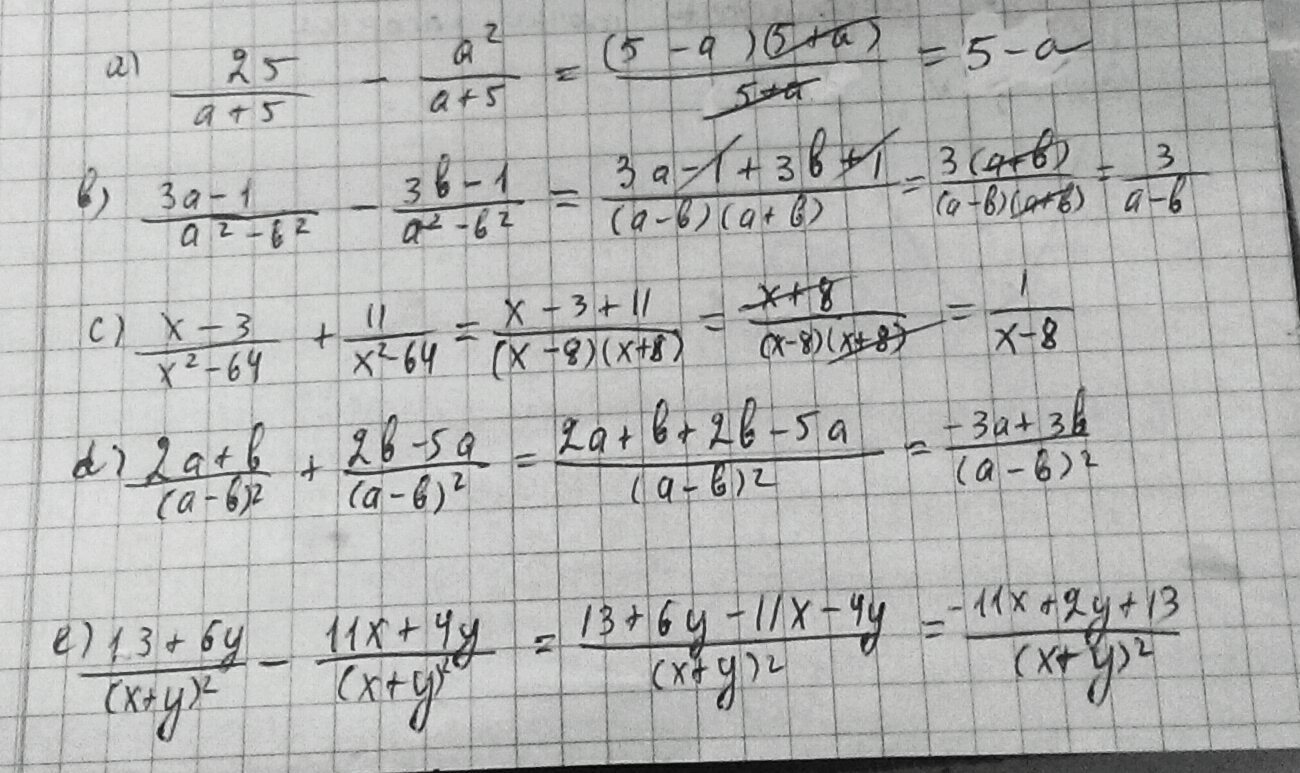 a) 25/(a+5) - a²/(a+5) = (5-a)(5+a)/(5+a) = 5-a
b) (3a-1)/(a²-b²) - (3b-1)/(a²-b²) = (3a-1+3b+1)/((a-b)(a+b)) = 3(a+b)/((a-b)(a+b)) = 3/(a-b)
c) (x-3)/(x²-64) + 11/(x²-64) = (x-3+11)/((x-8)(x+8)) = (x+8)/((x-8)(x+8)) = 1/(x-8)
d) (2a+b)/(a-b)² + (2b-5a)/(a-b)² = (2a+b+2b-5a)/(a-b)² = (-3a+3b)/(a-b)²
e) (13+6y)/(x+y)² - (11x+4y)/(x+y)² = (13+6y-11x-4y)/(x+y)² = (-11x+2y+13)/(x+y)²